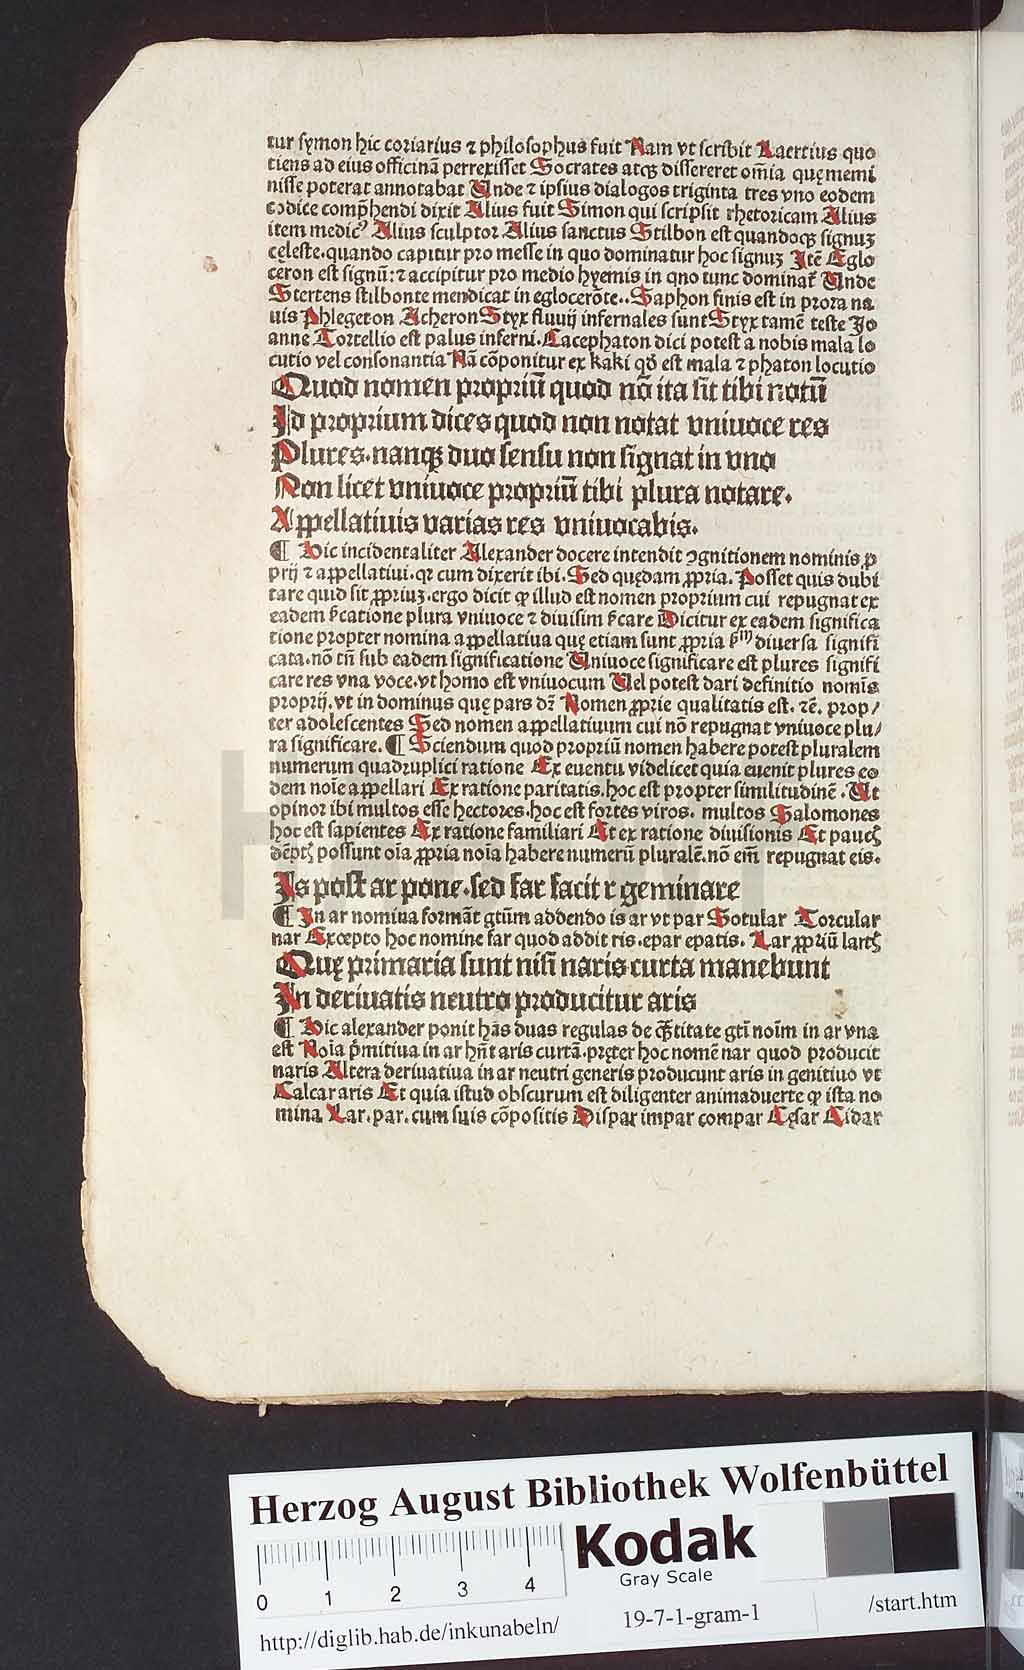 tur symon hic coriarius ⁊ philosophus fuit Nam vt scribit Laertius quo
tiens ad eius officinā perrexisset Socrates atqꝫ dissereret om̄ia quę memi
nisse poterat annotabat Unde ⁊ ipsius dialogos triginta tres vno eodem
codice comp̄hendi dixit Alius fuit Simon qui scripsit rhetoricam Alius
item medicꝰ Alius sculptor Alius sanctus Stilbon est quandoqꝫ signuꝫ
celeste.quando capitur pro messe in quo dominatur hoc signuꝫ Itē Eglo
ceron est signū:⁊ accipitur pro medio hyemis in qno tunc dominat᷑ Unde
Stertens stilbonte mendicat in eglocerōte..Saphon finis est in prora na
uis Phlegeton Acheron Styx fluuij infernales sunt Styx tamē teste Jo
anne Tortellio est palus inferni.Cacephaton dici potest a nobis mala lo
cutio vel consonantia Nā cōponitur ex kaki qd̄ est mala ⁊ phaton locutio
Quod nomen propriū quod nō ita sit tibi notū
Id proprium dices quod non notat vniuoce res
Plures.nanqꝫ duo sensu non signat in vno
Non licet vniuoce propriū tibi plura notare.
Appellatiuis varias res vniuocabis.
¶ Hic incidentaliter Alexander docere intendit ꝯgnitionem nominis ꝓ
prij ⁊ appellatiui.qꝛ cum dixerit ibi.Sed quędam ꝓpria.Posset quis dubi
tare quid sit ꝓpriuꝫ.ergo dicit ꝙ illud est nomen proprium cui repugnat ex
eadem s̄catione plura vniuoce ⁊ diuisim s̄care Dicitur ex eadem significa
tione propter nomina appellatiua quę etiam sunt ꝓpria sᵐ diuersa signifi
cata.nō tn̄ sub eadem significatione Uniuoce significare est plures signifi
care res vna voce.vt homo est vniuocum Uel potest dari definitio nomīs
proprij.vt in dominus quę pars dꝫ Nomen ꝓprie qualitatis est.⁊ē. prop/
ter adolescentes Sed nomen appellatiuum cui nō repugnat vniuoce plu/
ra significare. ¶ Sciendum quod propriū nomen habere potest pluralem
numerum quadruplici ratione Ex euentu videlicet quia euenit plures eo
dem noīe appellari Ex ratione paritatis.hoc est propter similitudinē .Ut
opinor ibi multos esse hectores.hoc est fortes viros. multos Salomones
hoc est sapientes Ex ratione familiari Et ex ratione diuisionis Et paucꝭ
dēptꝭ possunt oīa ꝓpria noīa habere numerū pluralē.nō em̄ repugnat eis.
Is post ar pone.sed far facit r geminare
¶ In ar nomina formāt gtūm addendo is ar vt par Sotular Torcular
nar Excepto hoc nomine far quod addit ris.epar epatis. Lar ꝓpriū lartꝭ
Quę primaria sunt nisi naris curta manebunt
In deriuatis neutro producitur aris
¶ Hic alexander ponit hās duas regulas de q̄titate gtī noīm in ar vna
est Noīa p̄mitiua in ar hn̄t aris curtā.pręter hoc nomē nar quod producit
naris Altera deriuatiua in ar neutri generis producunt aris in genitiuo vt
Calcar aris Et quia istud obscurum est diligenter animaduerte ꝙ ista no
mina Lar.par.cum suis cōpositis Dispar impar compar Cęsar Aidar
Herzog August Bibliothek Wolfenbüttel
Kodak
Gray Scale
0 1 2 3 4
http://diglib.hab.de/inkunabeln/
19-7-1-gram-1
/start.htm